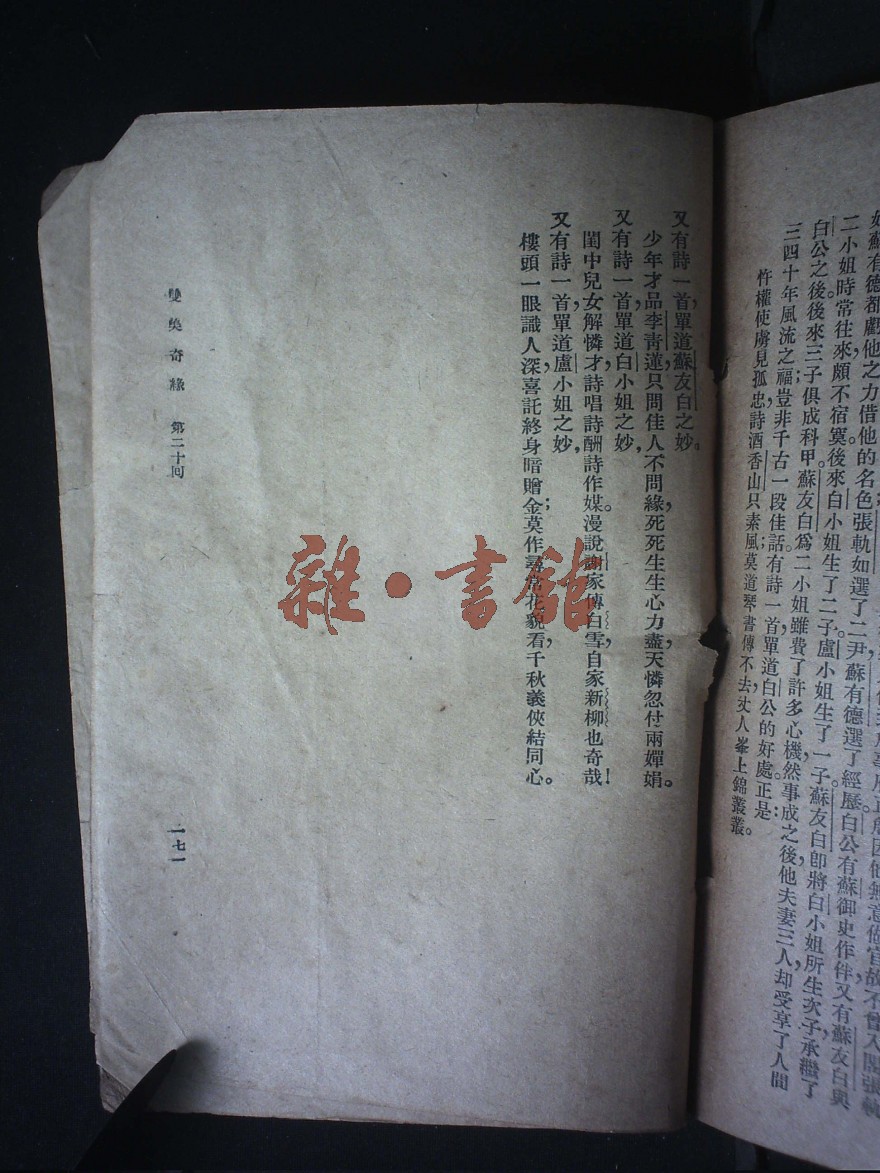 二小姐時常往來頗不宿寞後來白小姐生了二子盧小姐生了一子蘇友白卽將白小姐所生次子承繼了
白公之後後來三子俱成科甲。蘇友白爲二小姐雖費了許多心機然事成之後他夫妻三人却受享了人間
三四十年風流之福豈非千古一段佳話有詩一首單道白公的好處正是：
忤權使虜見孤忠，詩酒香山只素風；莫道琴書傳不去，丈人峯上錦叢叢。
又有詩一首，單道蘇友白之妙。
少年才品李靑蓮，只問佳人不問緣，死死生生心力盡，天憐忽付兩嬋娟。
又有詩一首，單道白小姐之妙，
閨中兒女解憐才，詩唱詩酬詩作媒。漫說謝家傳白雪，自家新柳也奇哉！
又有詩一首，單道盧小姐之妙，
樓頭一眼識人深，喜託終身暗贈金；莫作尋常花貌看，千秋義俠結同心。
雙 奐 奇 緣　第二十回
一七一
雜·書館